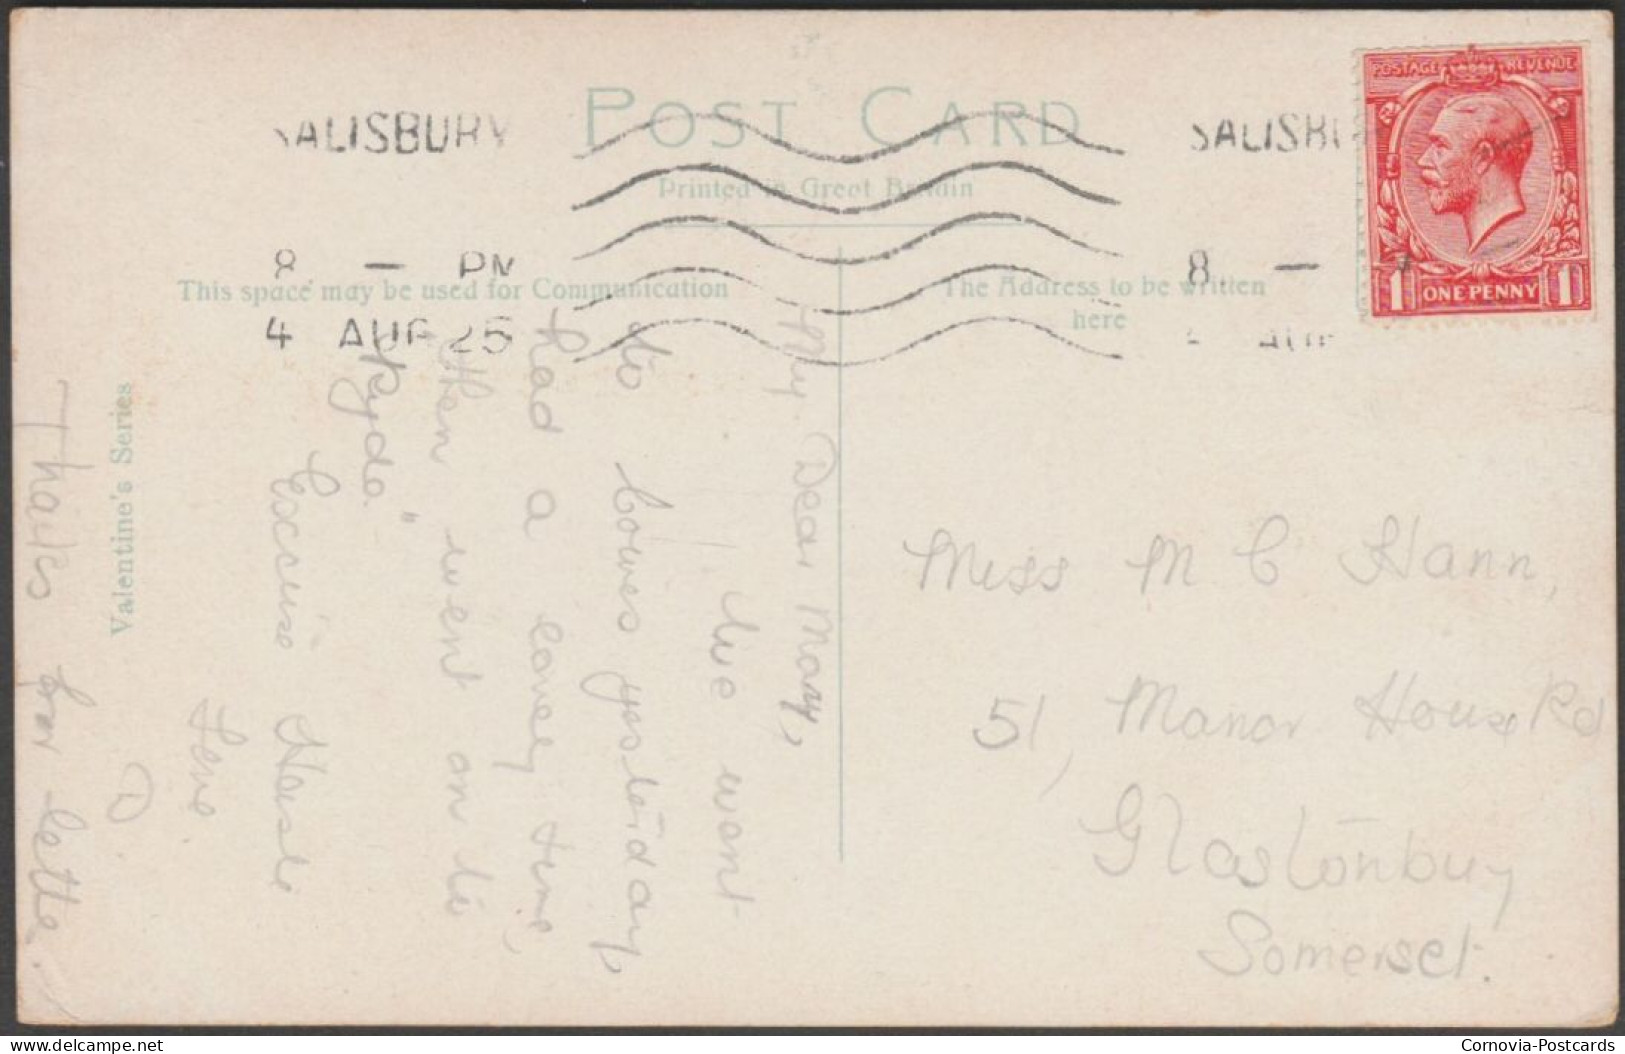 POST CARD
Printed in Great Britain
SALISBURY
8 - PM
4 AUG 25
SALISBU
8 -
4 AUG
POSTAGE REVENUE
1 ONE PENNY 1
This space may be used for Communication
The Address to be written
here
Valentine's Series
My Dear Mary,
We went
to Cowes yesterday,
had a lovely time,
then went on to
"Ryde."
Excuse Haste
Love
D
Thanks for letter.
Miss M C Hann,
51, Manor House Rd
Glastonbury
Somerset.
delcampe.net
Cornovia-Postcards